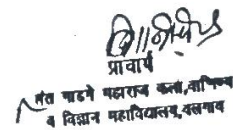 प्राचार्य
संत गाडगे महाराज कला,वाणिज्य
व विज्ञान महाविद्यालय, वलगाव